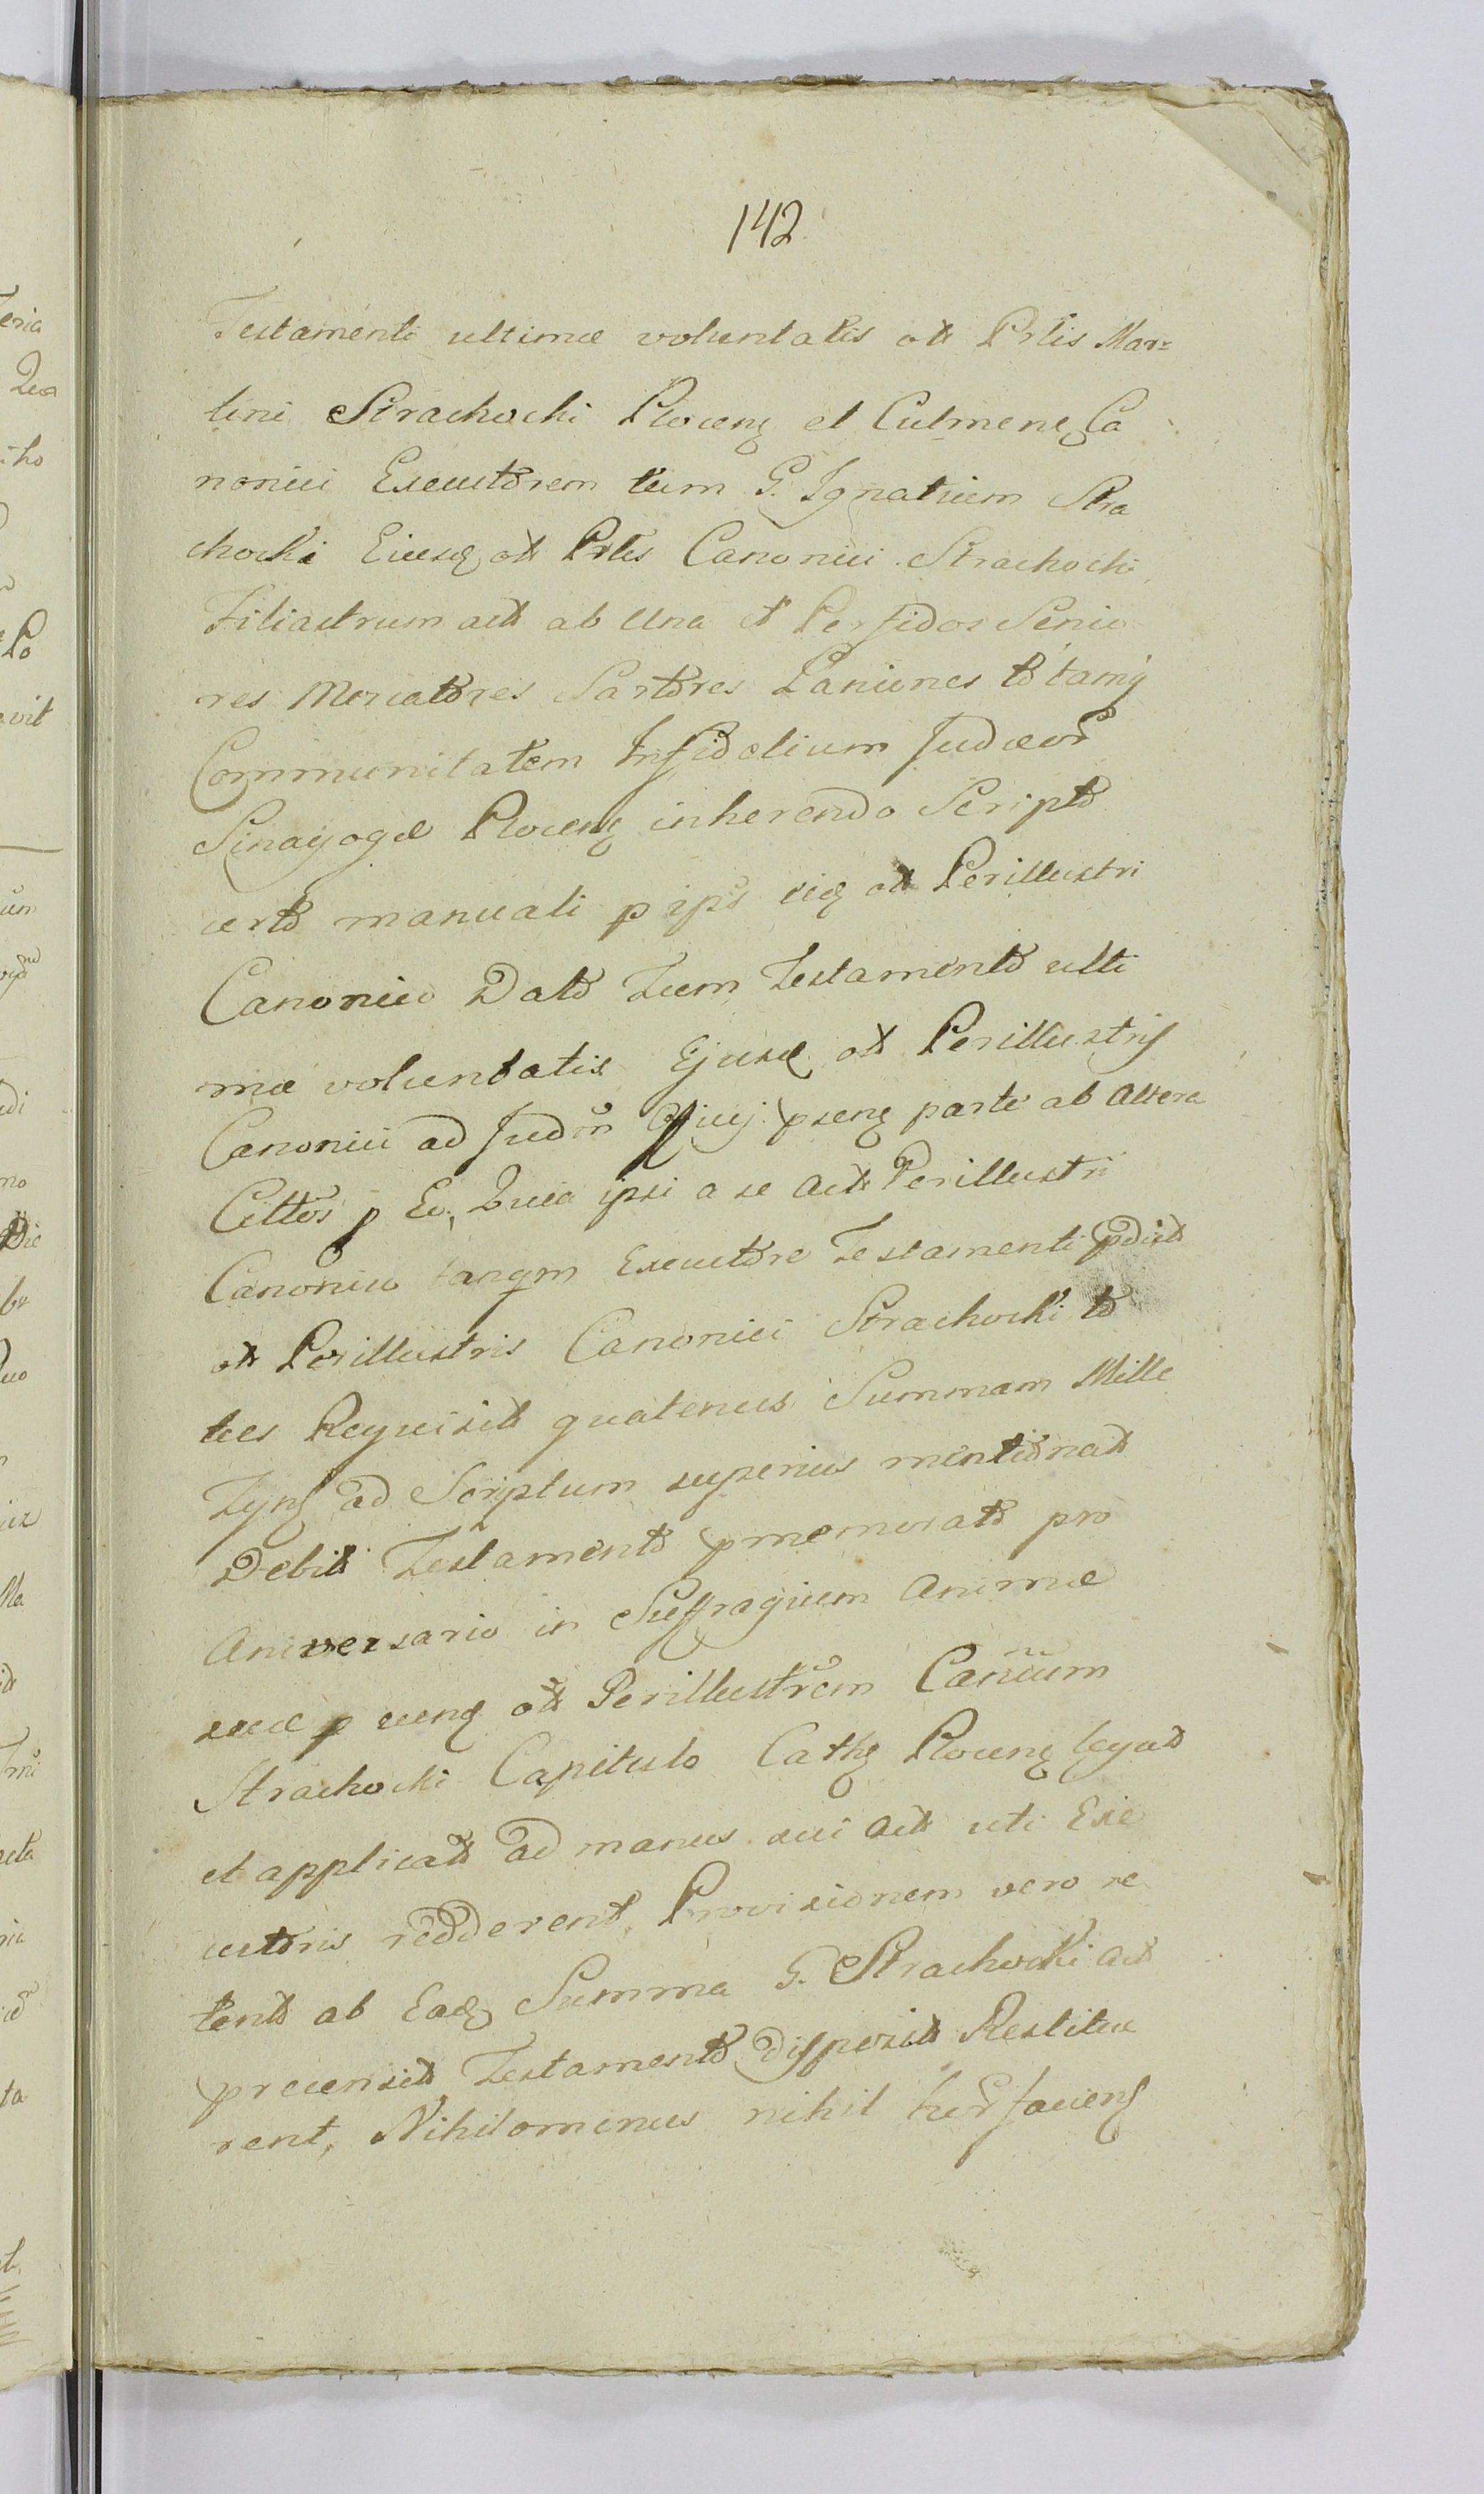 142
Testamenti ultimæ voluntatis olt Prlis Mar=
tini Strachocki Plocenȝ et Culmenȝ Ca
nonici Executorem tum G. Ignatium Stra
chocki Eiusȝ olt Prlis Canonici Strachocki
Filiastrum act ab Una et Perfidos Senio
res Mercatores Sartores Laniones totamq̃
Communitatem Infidelium Judæor
Sinagogæ Plocenȝ inherendo Scripto
certo manuali p ips eiȝ olt Perillustri
Canonico Dato Tum Testamento ulti
mæ voluntatis Ejusd olt Perillustris
Canonici ad Judm Officij psenȝ parte ab Altera
Cittos p Eo, Quia ipsi a se Acte Perillustri
Canonico tanqm Executore Testamenti pdict
olt Perillustris Canonici Strachocki to
ties Requisiti quatenus Summam Mille
Tynf ad Scriptum superius mentionat
Debit Testamento pmemorato pro
Aniversario in Suffragium Animæ
suæ p eunȝ olt Perillustrem Canĩcum
Strachocki Capitulo Cathȝ Plocenȝ legat
et applicat ad manus sui Act uti Exe
cutoris redderent, Provisionem vero re
tent ab Eadȝ Summa G. Strachocki Act
precensit Testamento disposit Restitue
rent, Nihilominus nihil hor faciens